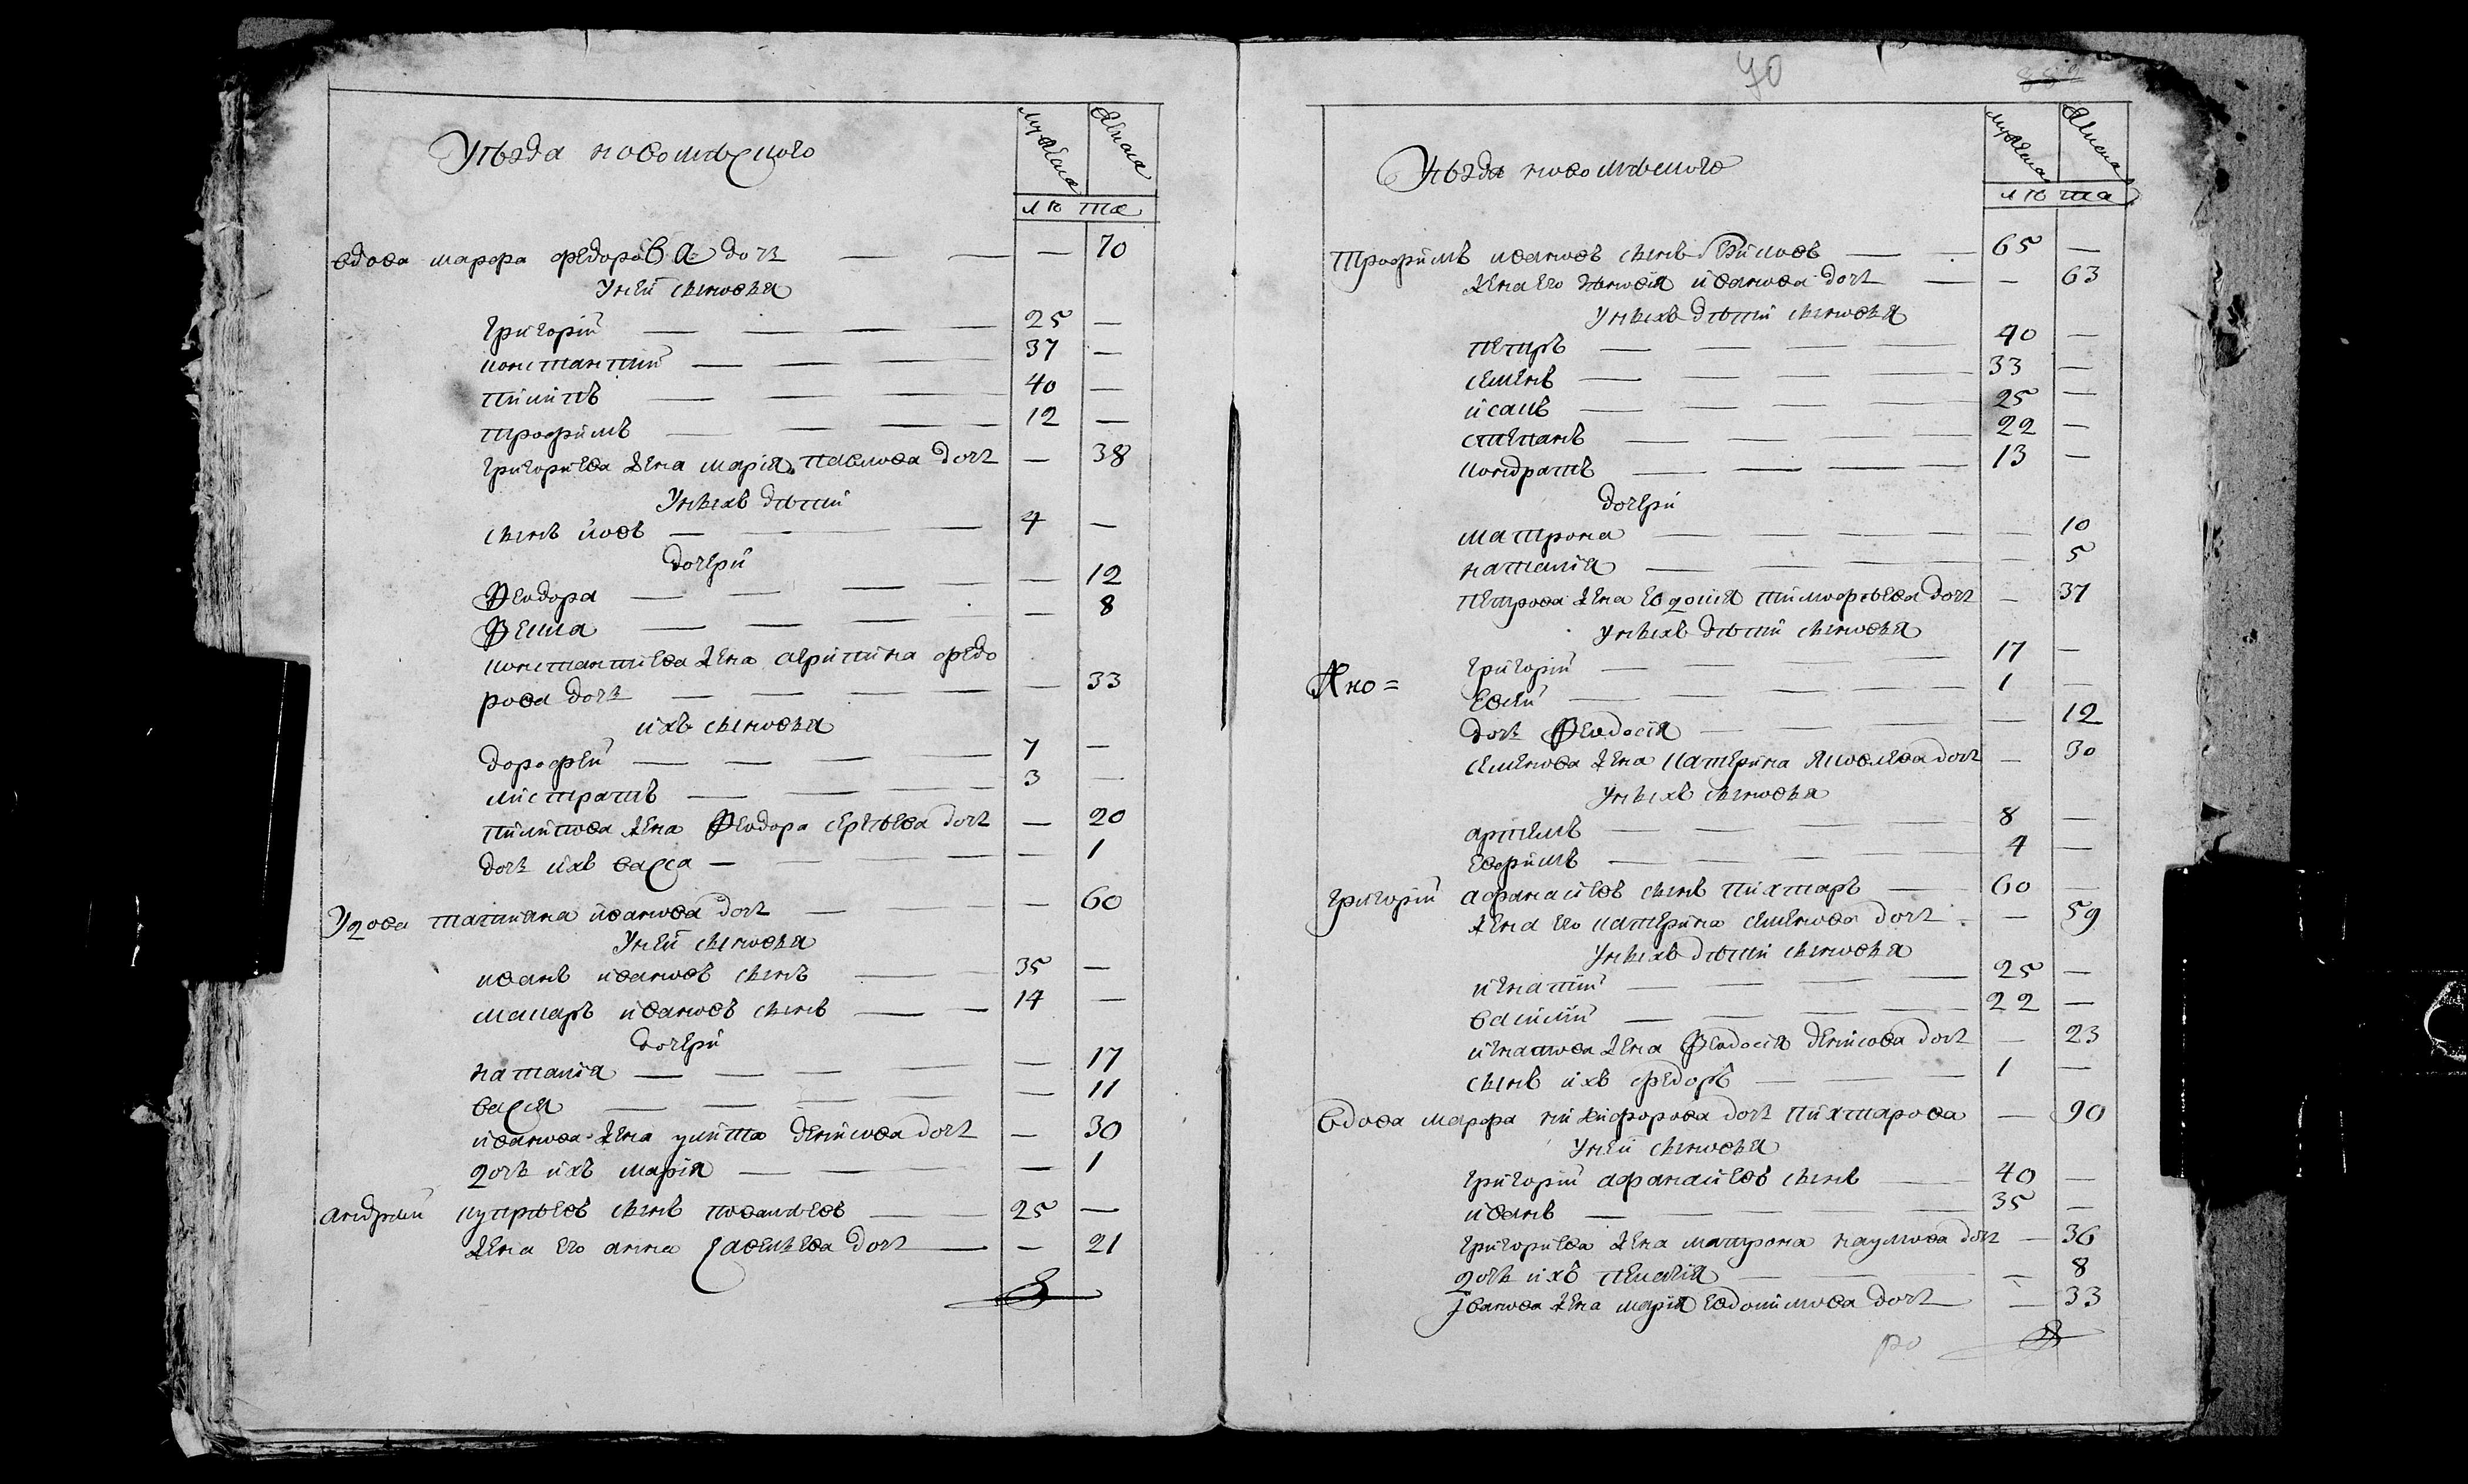 Уѣзда новомѣского
мужеска
женска
лѣта
вдова марфа федорова дочь — — 70
Унеи сыновья
григорiй — 25 —
константiй — 37 —
пилипъ — 40 —
трофимъ — 12 —
григориева жена марiя павлова дочь — 38
Унихъ дѣтей
сынъ иовъ — 4 —
дочери
Феодора — 12
Фекла — 8
константиева жена агрипина федо
рова дочь — 33
ихъ сыновья
дорофей — 7 —
листратъ — 3 —
пилипова жена Феодора сергѣева дочь — 20
дочь ихъ васса — — 1
Удова татияна иванова дочь — — 60
Унеи сыновья
иванъ ивановъ сынъ — 35 —
макаръ ивановъ сынъ — 14 —
дочери
наталiя — — 17
васся — — 11
иванова жена улита денисова дочь — 30
дочь ихъ марiя — — 1
андрѣй купрѣевъ сынъ — 25 —
жена его анна савельева дочь — — 21
70
Уѣзда новомѣского
мужеска
женска
лѣта
Трофимъ ивановъ сынъ — 65 —
жена его зѣновiя иванова дочь — — 63
Унихъ дѣтей сыновья
петръ — 40 —
семенъ — 33 —
исакъ — 25 —
степанъ — 22 —
кондратъ — 13 —
дочери
матрона — — 10
наталiя — — 5
петрова жена евдокия тимофѣева дочь — 37
Унихъ дѣтей сыновья
григорiй — 17 —
евсей — 1 —
дочь Феодосiя — — 12
семенова жена катерина яковлева дочь — 30
Унихъ сыновья
артемъ — 8 —
ефимъ — 4 —
григорiй афанасиевъ сынъ пихтаръ — 60 —
жена его катерина семенова дочь — — 59
Унихъ дѣтей сыновья
игнатiй — 25 —
василiй — 22 —
игнатова жена Феодосiя денисова дочь — 23
сынъ ихъ федоръ — 1 —
Вдова марфа никифорова дочь пихтарова — 90
Унеи сыновья
григорiй афанасиевъ сынъ — 40 —
иванъ — 35 —
григориева жена матрона наумова дочь — 36
дочь ихъ пелагiя — — 8
Iванова жена марiя евдокимова дочь — 33